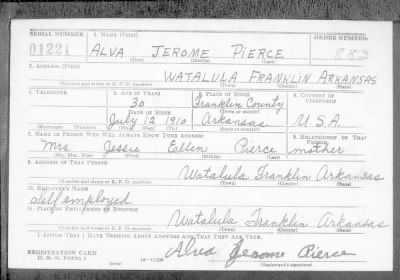 SERIAL NUMBER 1. NAME (Print) ORDER NUMBER
01221 ALVA JEROME PIERCE 882
(First) (Middle) (Last)
2. ADDRESS (Print)
WATALULA FRANKLIN ARKANSAS
(Number and street or R. F. D. number) (Town) (County) (State)
3. TELEPHONE 4. AGE IN YEARS 5. PLACE OF BIRTH 6. COUNTRY OF CITIZENSHIP
30 Franklin County
DATE OF BIRTH (Town or county)
July 12 1910 Arkansas U.S.A.
(Exchange) (Number) (Mo.) (Day) (Yr.) (State or country)
7. NAME OF PERSON WHO WILL ALWAYS KNOW YOUR ADDRESS 8. RELATIONSHIP OF THAT PERSON
Mrs Jessie Ellen Pierce mother
(Mr., Mrs., Miss) (First) (Middle) (Last)
9. ADDRESS OF THAT PERSON
Watalula Franklin Arkansas
(Number and street or R. F. D. number) (Town) (County) (State)
10. EMPLOYER'S NAME
Self employed
11. PLACE OF EMPLOYMENT OR BUSINESS
Watalula Franklin Arkansas
(Number and street or R. F. D. number) (Town) (County) (State)
I AFFIRM THAT I HAVE VERIFIED ABOVE ANSWERS AND THAT THEY ARE TRUE.
REGISTRATION CARD
D. S. S. Form 1 Alva Jerome Pierce
(Registrant's signature)